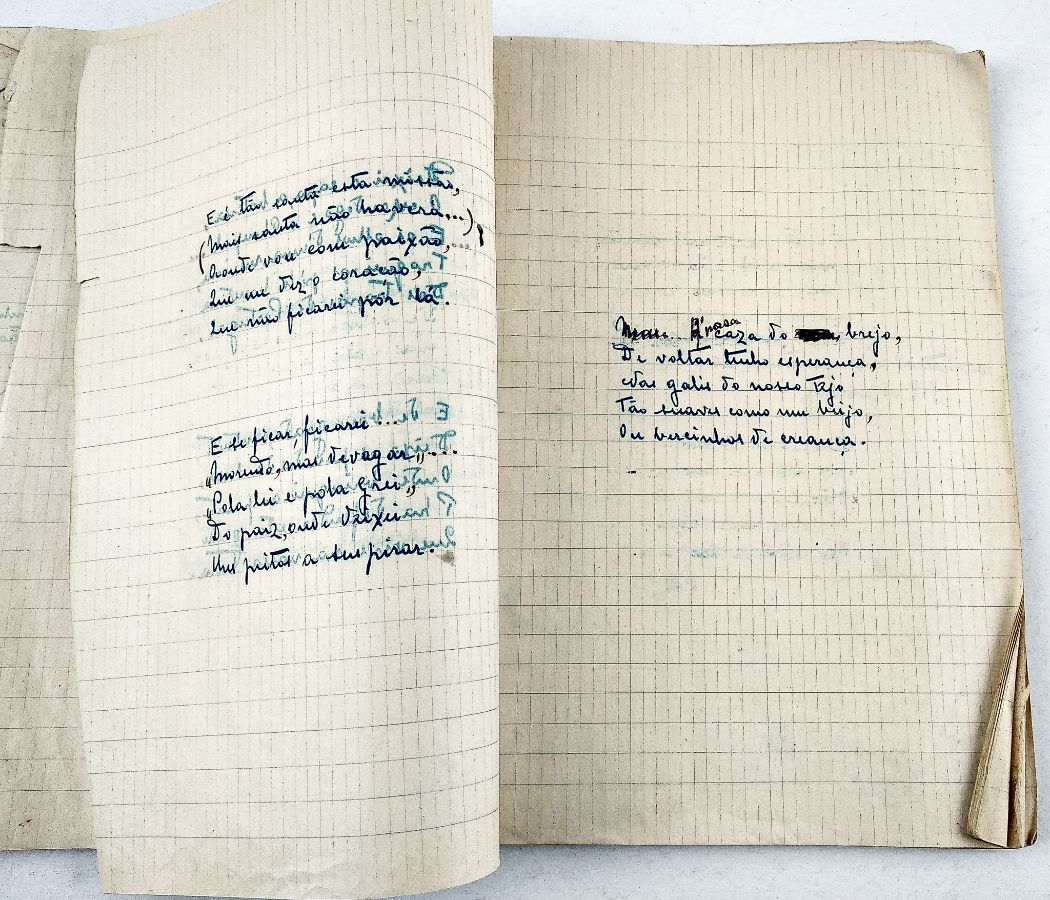 E é tão santa esta missão,
(Mais santa não haverá...),
Aonde vou com paixão,
Que me diz o coração,
Que não ficarei por lá.
E se ficar, ficarei...
„Morrendo, mas devagar„...
„Pela lei e pela grei„
Do paiz, onde deixei
Uns peitos a suspirar.
caza do brejo,
De voltar tenho esperança,
Nas galis do nosso Tejo
Tão suaves como um beijo,
Ou bercinhos de creança.